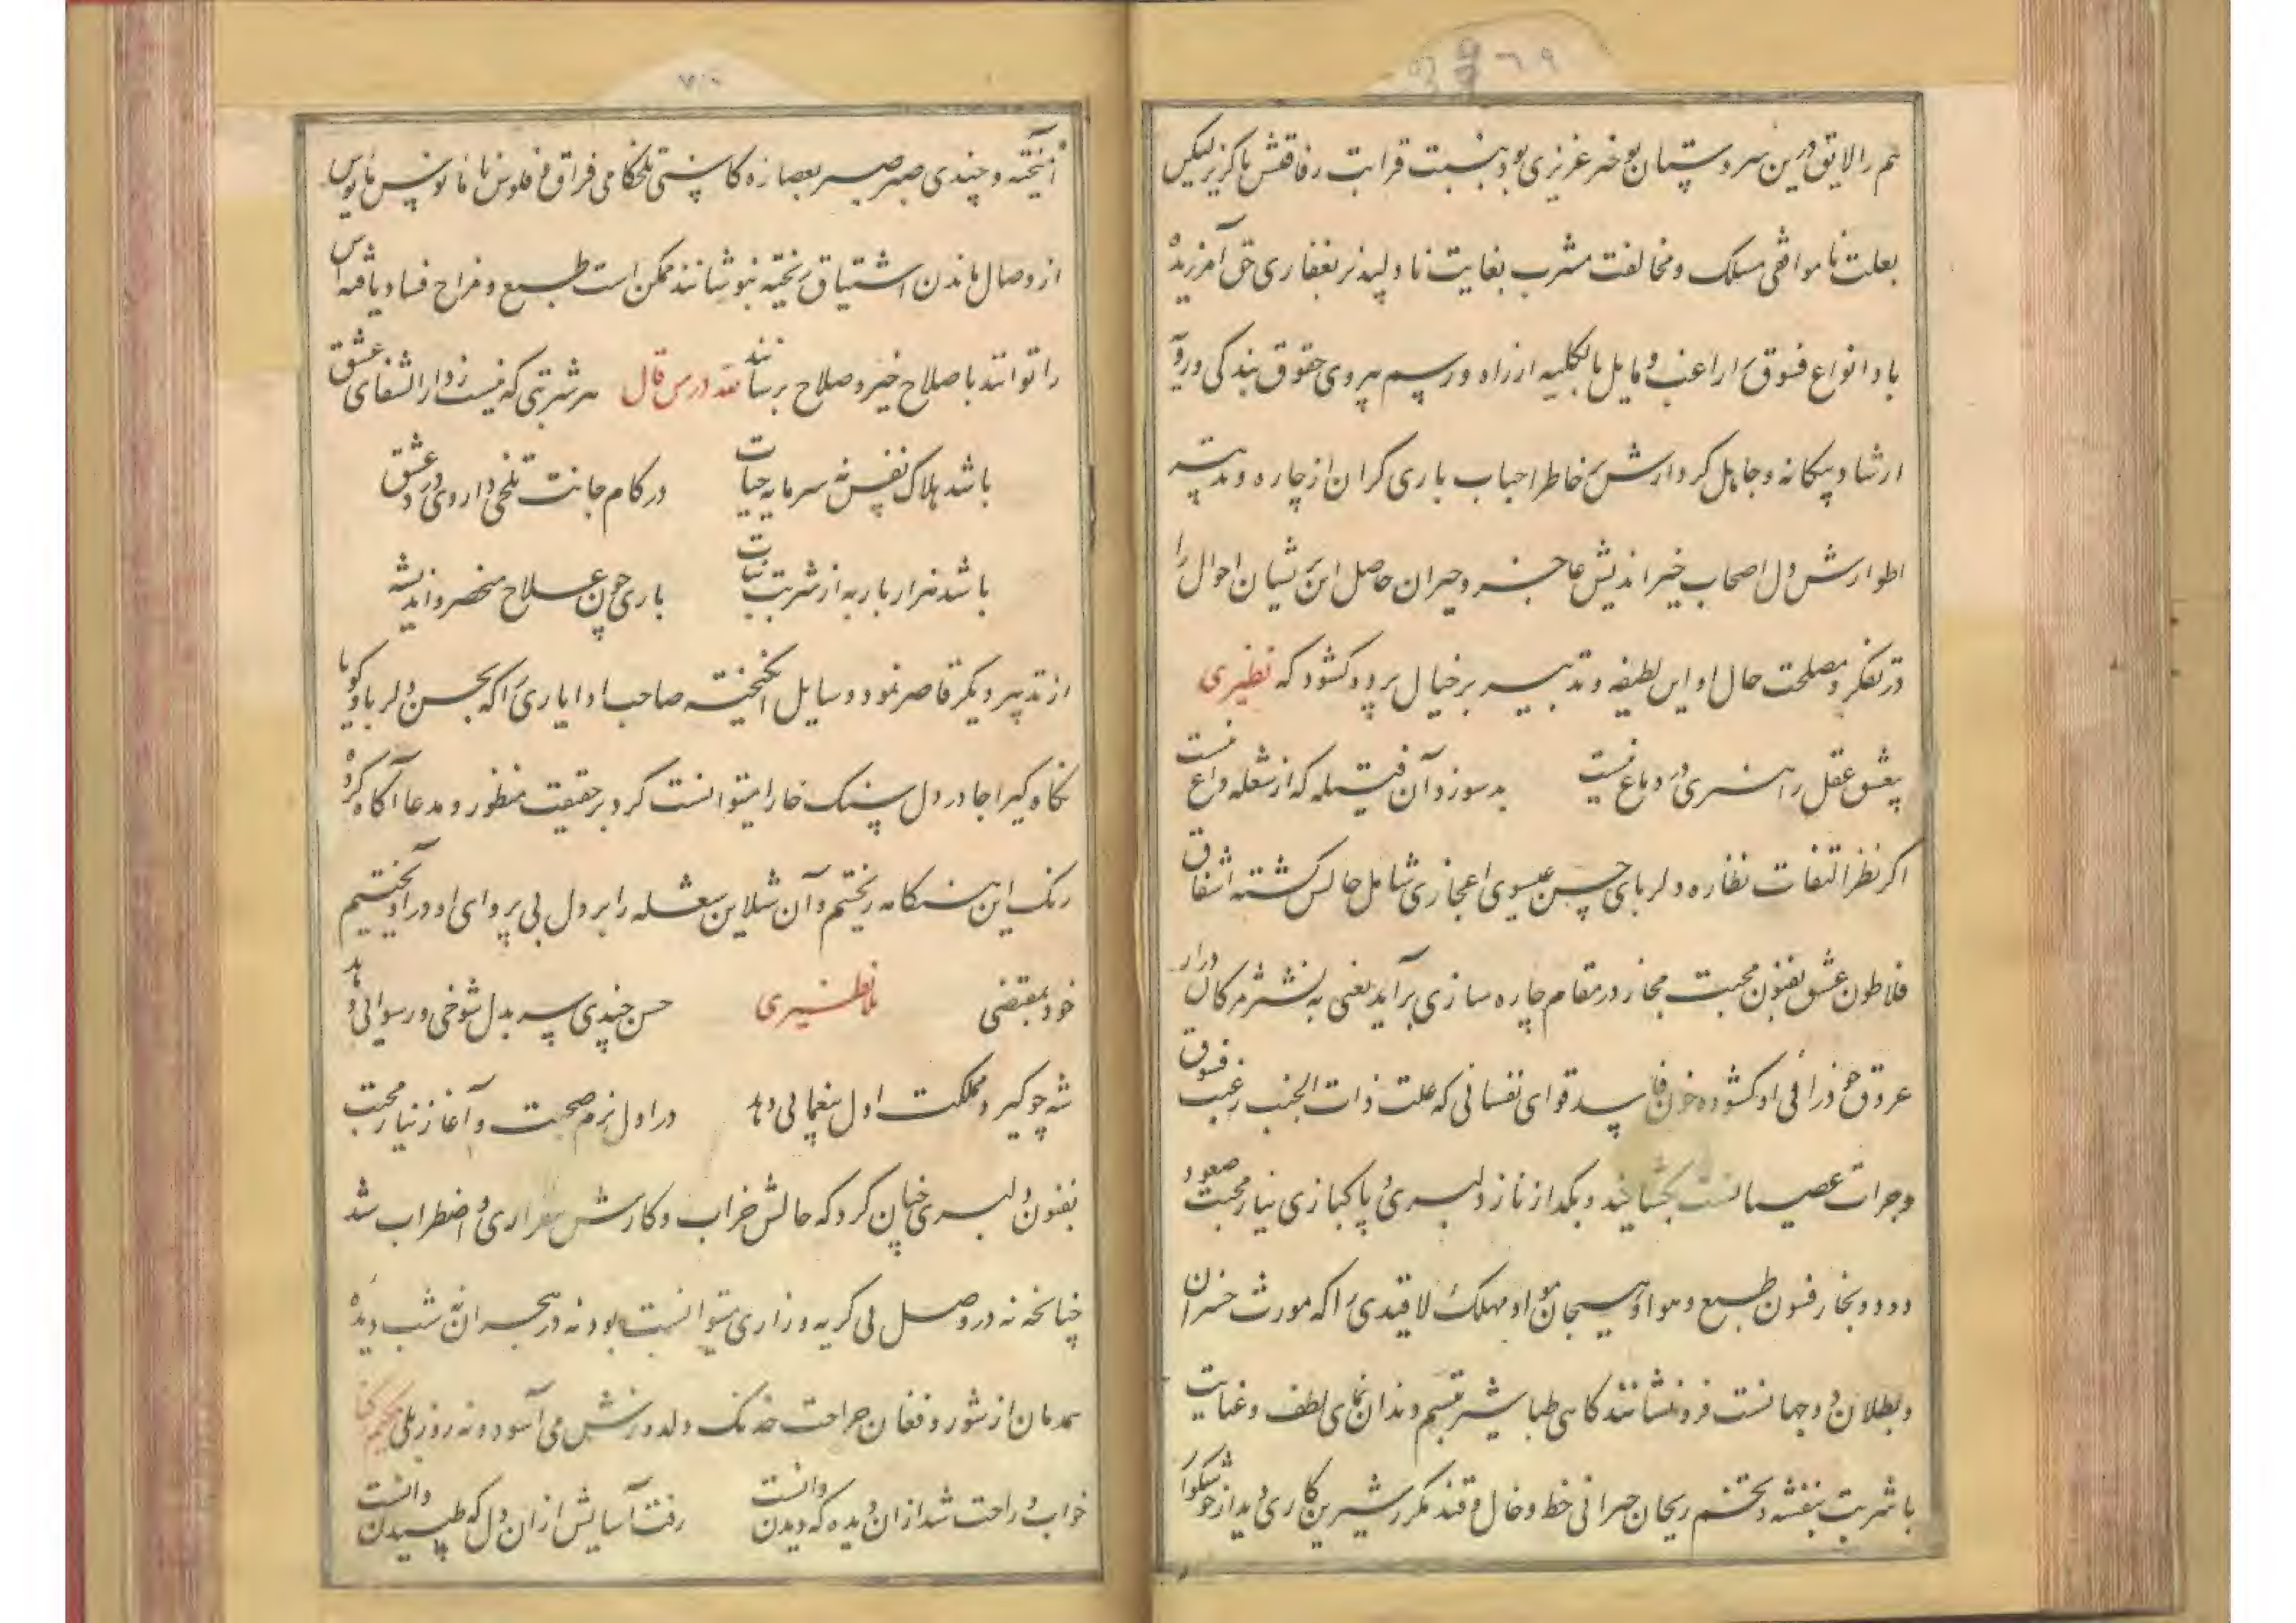 هم را لایق درین سر و بستان نو خبر عزیزی بود بنسبت قرابت رفاقتش ناگزیر لیکن
بعلت نا موافقی مسلک و مخالفت مشرب بغایت نا دلپذیر بغفاری حق آمرزیده
باد انواع فسوق را راغب و مایل بالکلیه از راه و رسم پیروی حقوق بندگی و
ارشاد بیکانه و جاهل کردارش خاطر احباب باری کران از چاره و تدبیر
اطوارش دل اصحاب خیر اندیش عاجز و حیران حاصل این احوال را
در تفکر و مصلحت حال او این لطیفه و تدبیر بر خیال برو کشود که نظیری
بیعشق عقل را هنری در دماغ نیست
بد سوزد آن فتیله که از شعله داغ نیست
اکر نظر التفات نظاره دلربای حسن عیسوی اعجازی شامل حالش کشته اشفاق
فلاطون عشق بفنون محبت مجاز در مقام چاره سازی برآید یعنی به نشتر مژکان دراز
عروق او کشوده خون فاسد قوای نفسانی که علت ذات الجنب رغبت فسوق
و جرات عصیانست بکشایند و بکداز ناز دلبری و پاکبازی نیاز محبت صعود
دود و بخار فسون طبع و هوا و هیجان مواد مهلک لاقیدی را که مورث خسران
و بطلان دو جهانست فرو نشانند کاهی طباشیر تبسم دندان نمای لطف و عنایت
با شربت بنفشه و تخم ریحان خط و خال و قند مکرر شیرین کاری
آمیخته و چندی صبر بعصاره کاسنی تلخکامی فراق و فلوس نا مانوس مایوس
از وصال ماندن اشتیاق ریخته بنوشانند ممکن است طبع و مزاج فساد یافته اش
را توانند باصلاح خیر و صلاح برسانند لله در من قال هر شربتی که نیست ز دار الشفای عشق
باشد هلاک نفس نه سرمایه حیات
در کام جانت تلخی داروی درد عشق
باشد هزار بار به از شربت نبات
باری چون علاج منحصر و اندیشه
از تدبیر دیکر قاصر نمود وسایل انگیخته صاحب ادا یاری را که بحسن دلربا و کویا
نکاه کیرا جا در دل سنک خارا میتوانست کرد بر حقیقت منظور و مدعا آکاه کرده
رنک این هنکامه ریختیم و آن شعله را بر دل بی پروای او در آویختیم
خود بمقتضی
ملا نظیری
حسن چندی سر بدل شوخی و رسوائی دهد
شه چو کیرد مملکت اول بیغمائی دهد
در اول بزم صحبت و آغاز نیاز محبت
بفنون دلبری چنان کرد که حالش خراب و کارش بیقراری و اضطراب شد
چنانچه نه در وصل بی کریه و زاری میتوانست بود نه در هجران شب دیده
همدمان از شور و فغان جراحت خدنک دلدوزش می آسود و نه روز بلی
خواب و راحت شد ازان دیده که دیدن دانست
رفت آسایش ازان دل که طپیدن دانست